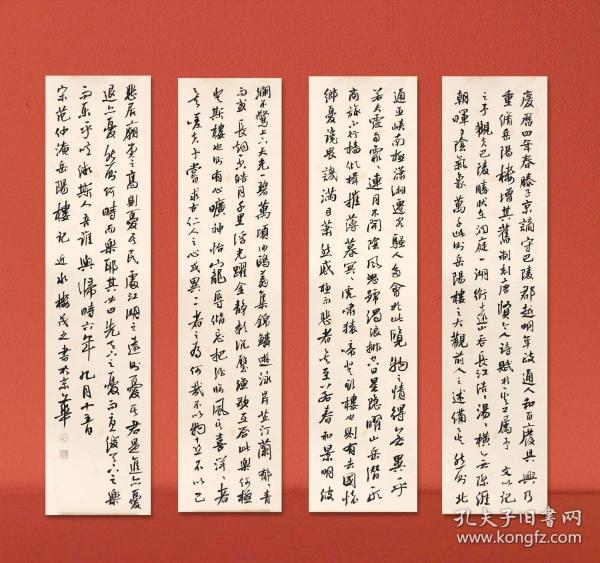 慶曆四年春滕子京謫守巴陵郡越明年政通人和百廢具興乃
重脩岳陽樓增其舊制刻唐賢今人詩賦於其上屬予文以記
之予觀夫巴陵勝狀在洞庭一湖銜遠山吞長江浩浩湯湯橫無際涯
朝暉夕陰氣象萬千此則岳陽樓之大觀前人之述備矣然則北
通巫峽南極瀟湘遷客騷人多會於此覽物之情得無異乎
若夫霪雨霏霏連月不開陰風怒號濁浪排空日星隱曜山岳潛形
商旅不行檣傾楫摧薄暮冥冥虎嘯猿啼登斯樓也則有去國懷
鄉憂讒畏譏滿目蕭然感極而悲者矣至若春和景明波
瀾不驚上下天光一碧萬頃沙鷗翔集錦鱗游泳岸芷汀蘭郁郁青青
而或長煙一空皓月千里浮光躍金靜影沉璧漁歌互答此樂何極
登斯樓也則有心曠神怡寵辱偕忘把酒臨風其喜洋洋者
矣嗟夫予嘗求古仁人之心或異二者之為何哉不以物喜不以己
悲居廟堂之高則憂其民處江湖之遠則憂其君是進亦憂
退亦憂然則何時而樂耶其必曰先天下之憂而憂後天下之樂
而樂乎噫微斯人吾誰與歸時六年九月十五日
宋范仲淹岳陽樓記 近水樓茂之書於京華
孔夫子旧书网
www.kongfz.com